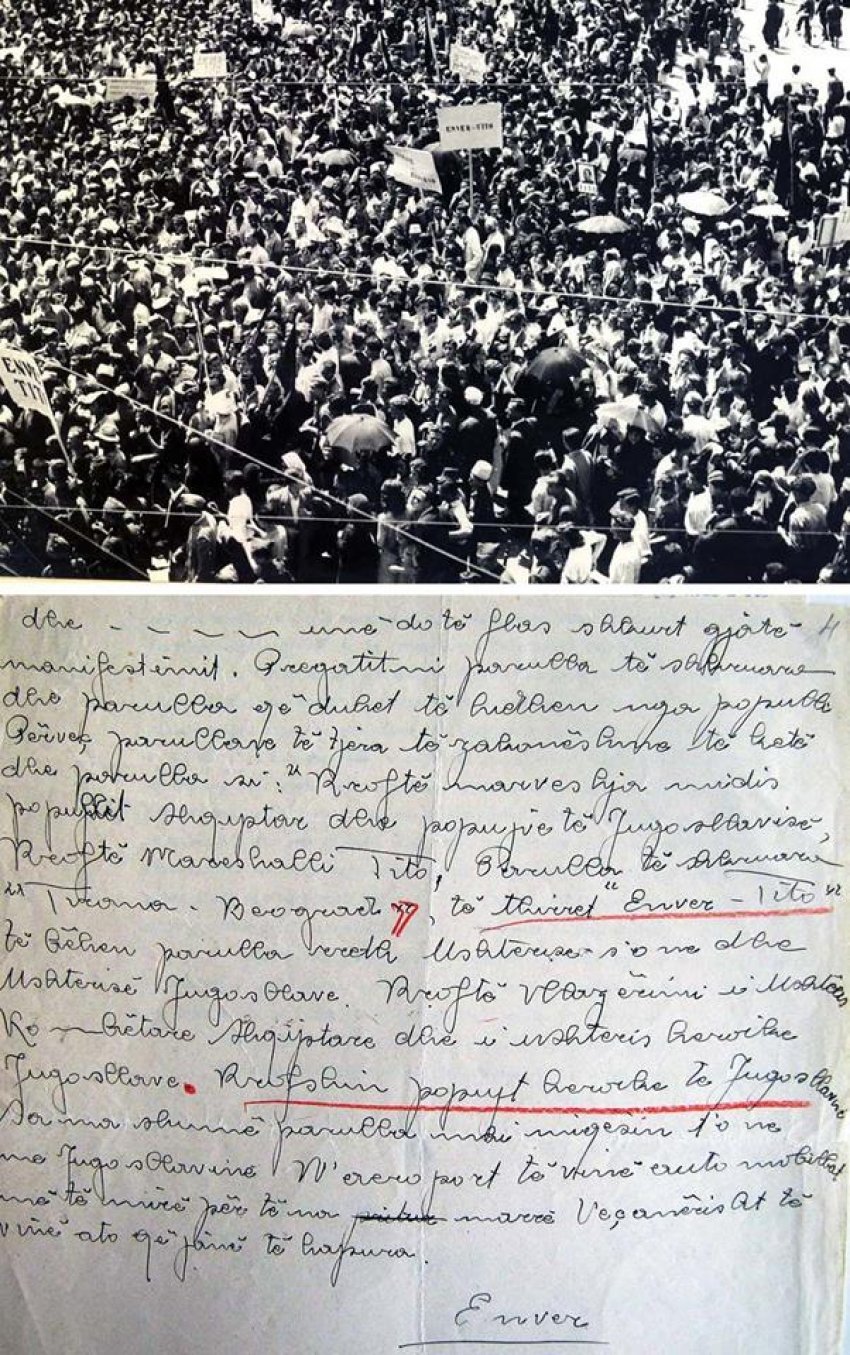 ENVER-TITO
ENV
TIT
4
dhe - - - - - unë do të flas shkurt gjatë
manifestimit. Pregatitni parulla të shkruara
dhe parulla që duhet të hidhen nga populli
Përveç parullave të tjera të zakonëshme të ketë
dhe parulla si: "Rroftë marveshja midis
popullit Shqiptar dhe popujve të Jugosllavisë,
Rroftë Mareshalli Tito, Parulla të shkruara
"Tirana - Beograd", të thirret "Enver - Tito"
të bëhen parulla rreth Ushtrise s'onë dhe
Ushterisë Jugosllave. Rroftë Vllazërimi i Ushtëris
Kombëtare Shqiptare dhe i ushteris heroike
Jugosllave. Rrofshin popujt heroike te Jugosllavisë
Sa ma shumë parulla mbi miqesin t'onë
me Jugosllavinë N'aeroport të vinë automobilat
më të mirë për të na marrë Veçanërisht të
vinë ato që jänë të hapura.
Enver